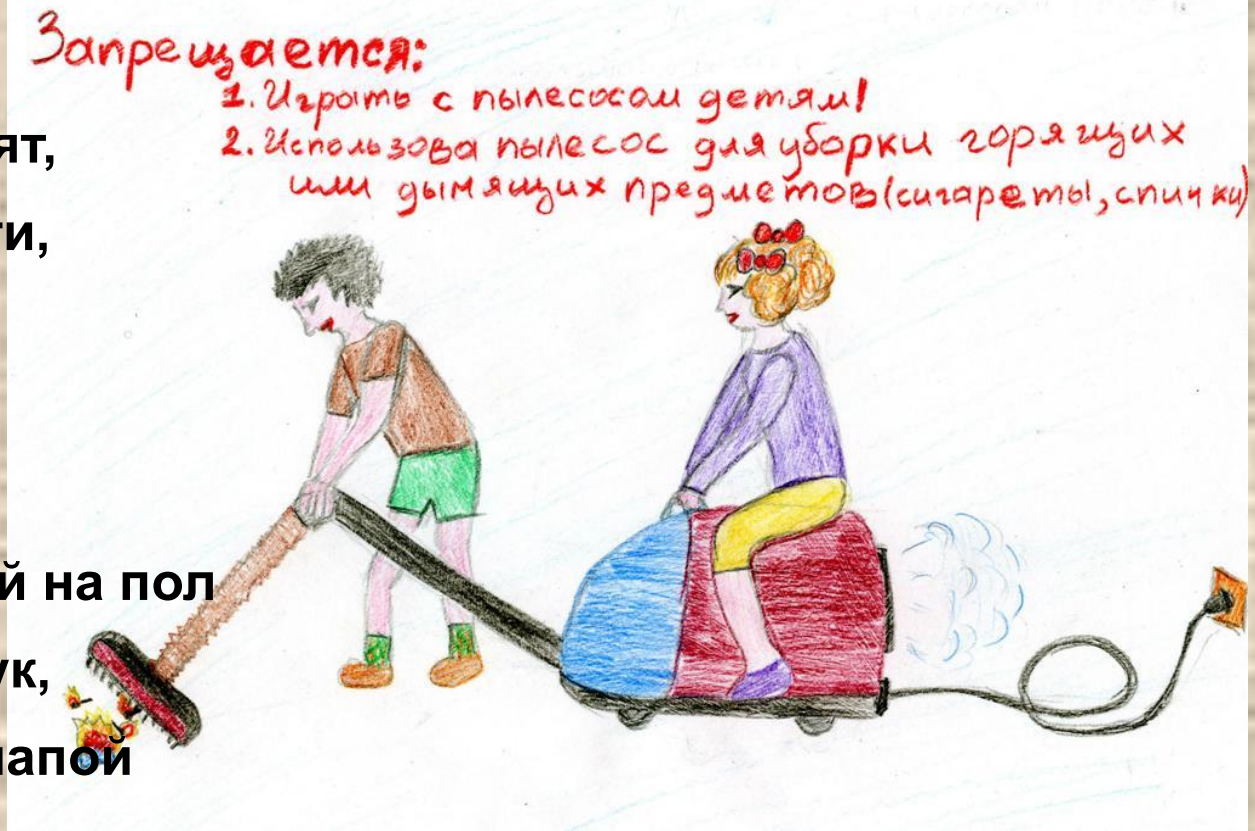 Запрещается:
1. Играть с пылесосом детям!
2. Использова пылесос для уборки горящих
или дымящих предметов (сигареты, спички)
ят,
ти,
й на пол
ук,
лапой